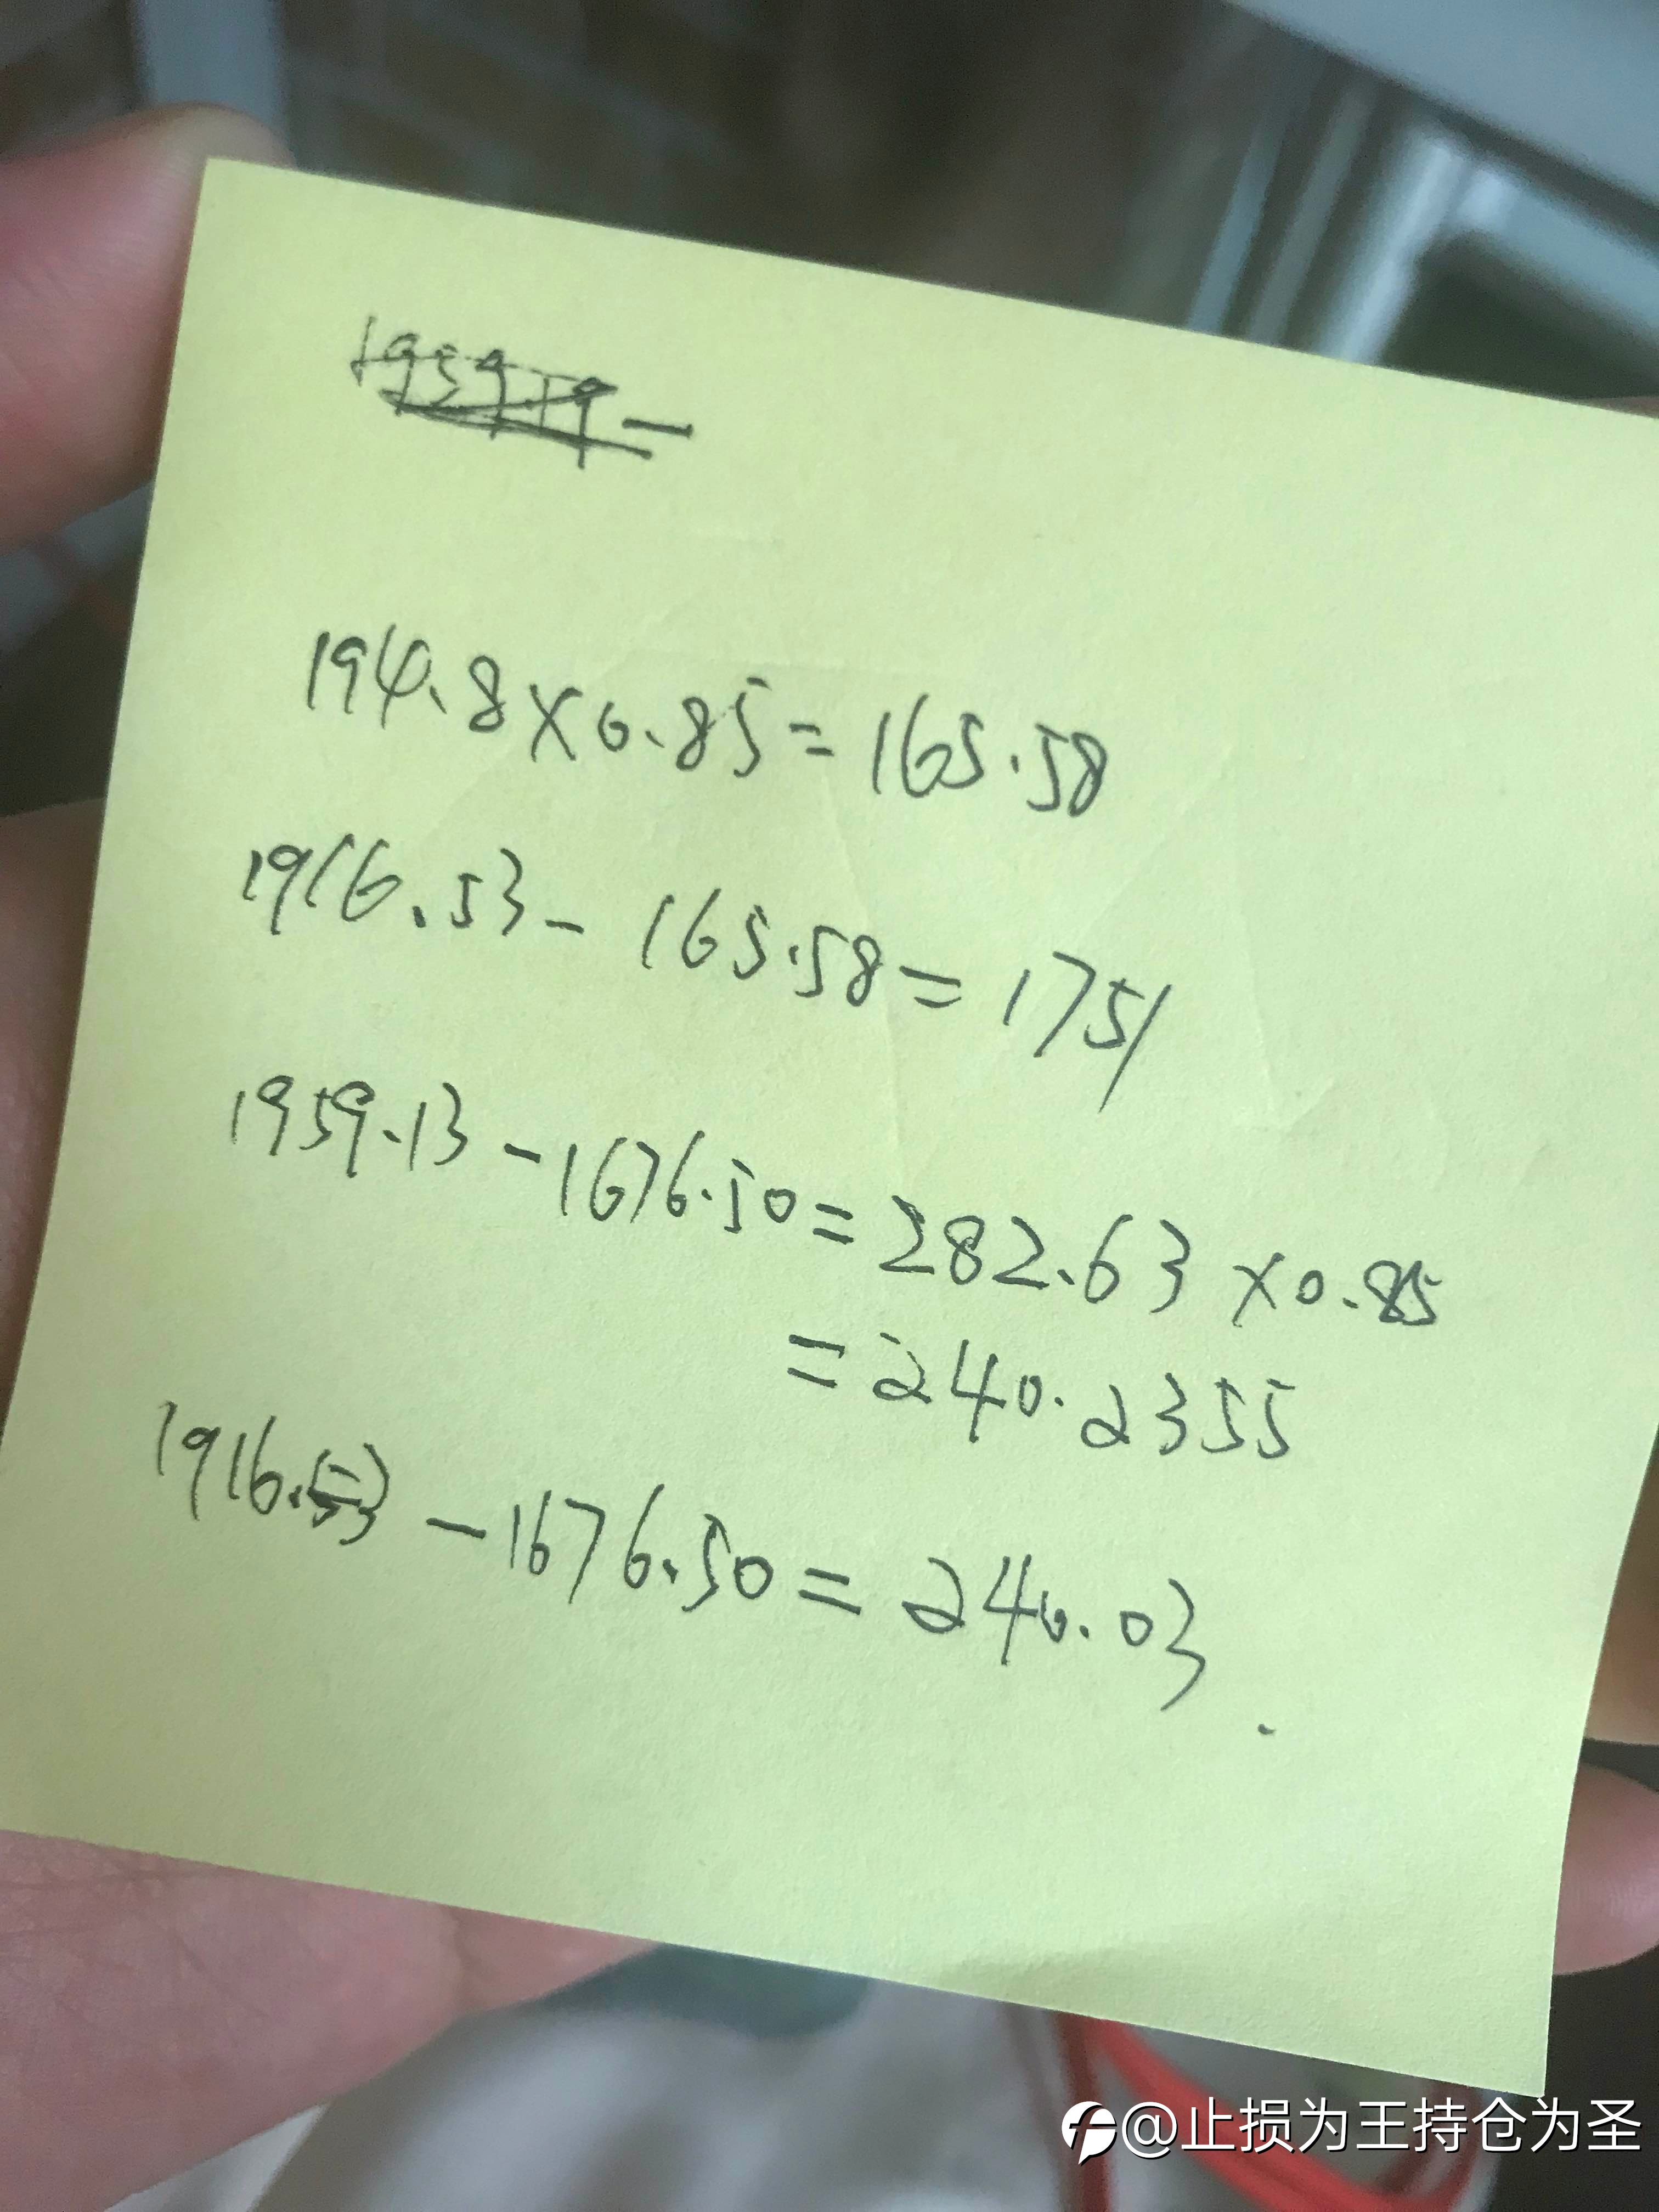 1959.19-
194.8×0.85=165.58
1916.53-165.58=1751
1959.13-1676.50=282.63×0.85
=240.2355
1916.53-1676.50=240.03.
@止损为王持仓为圣